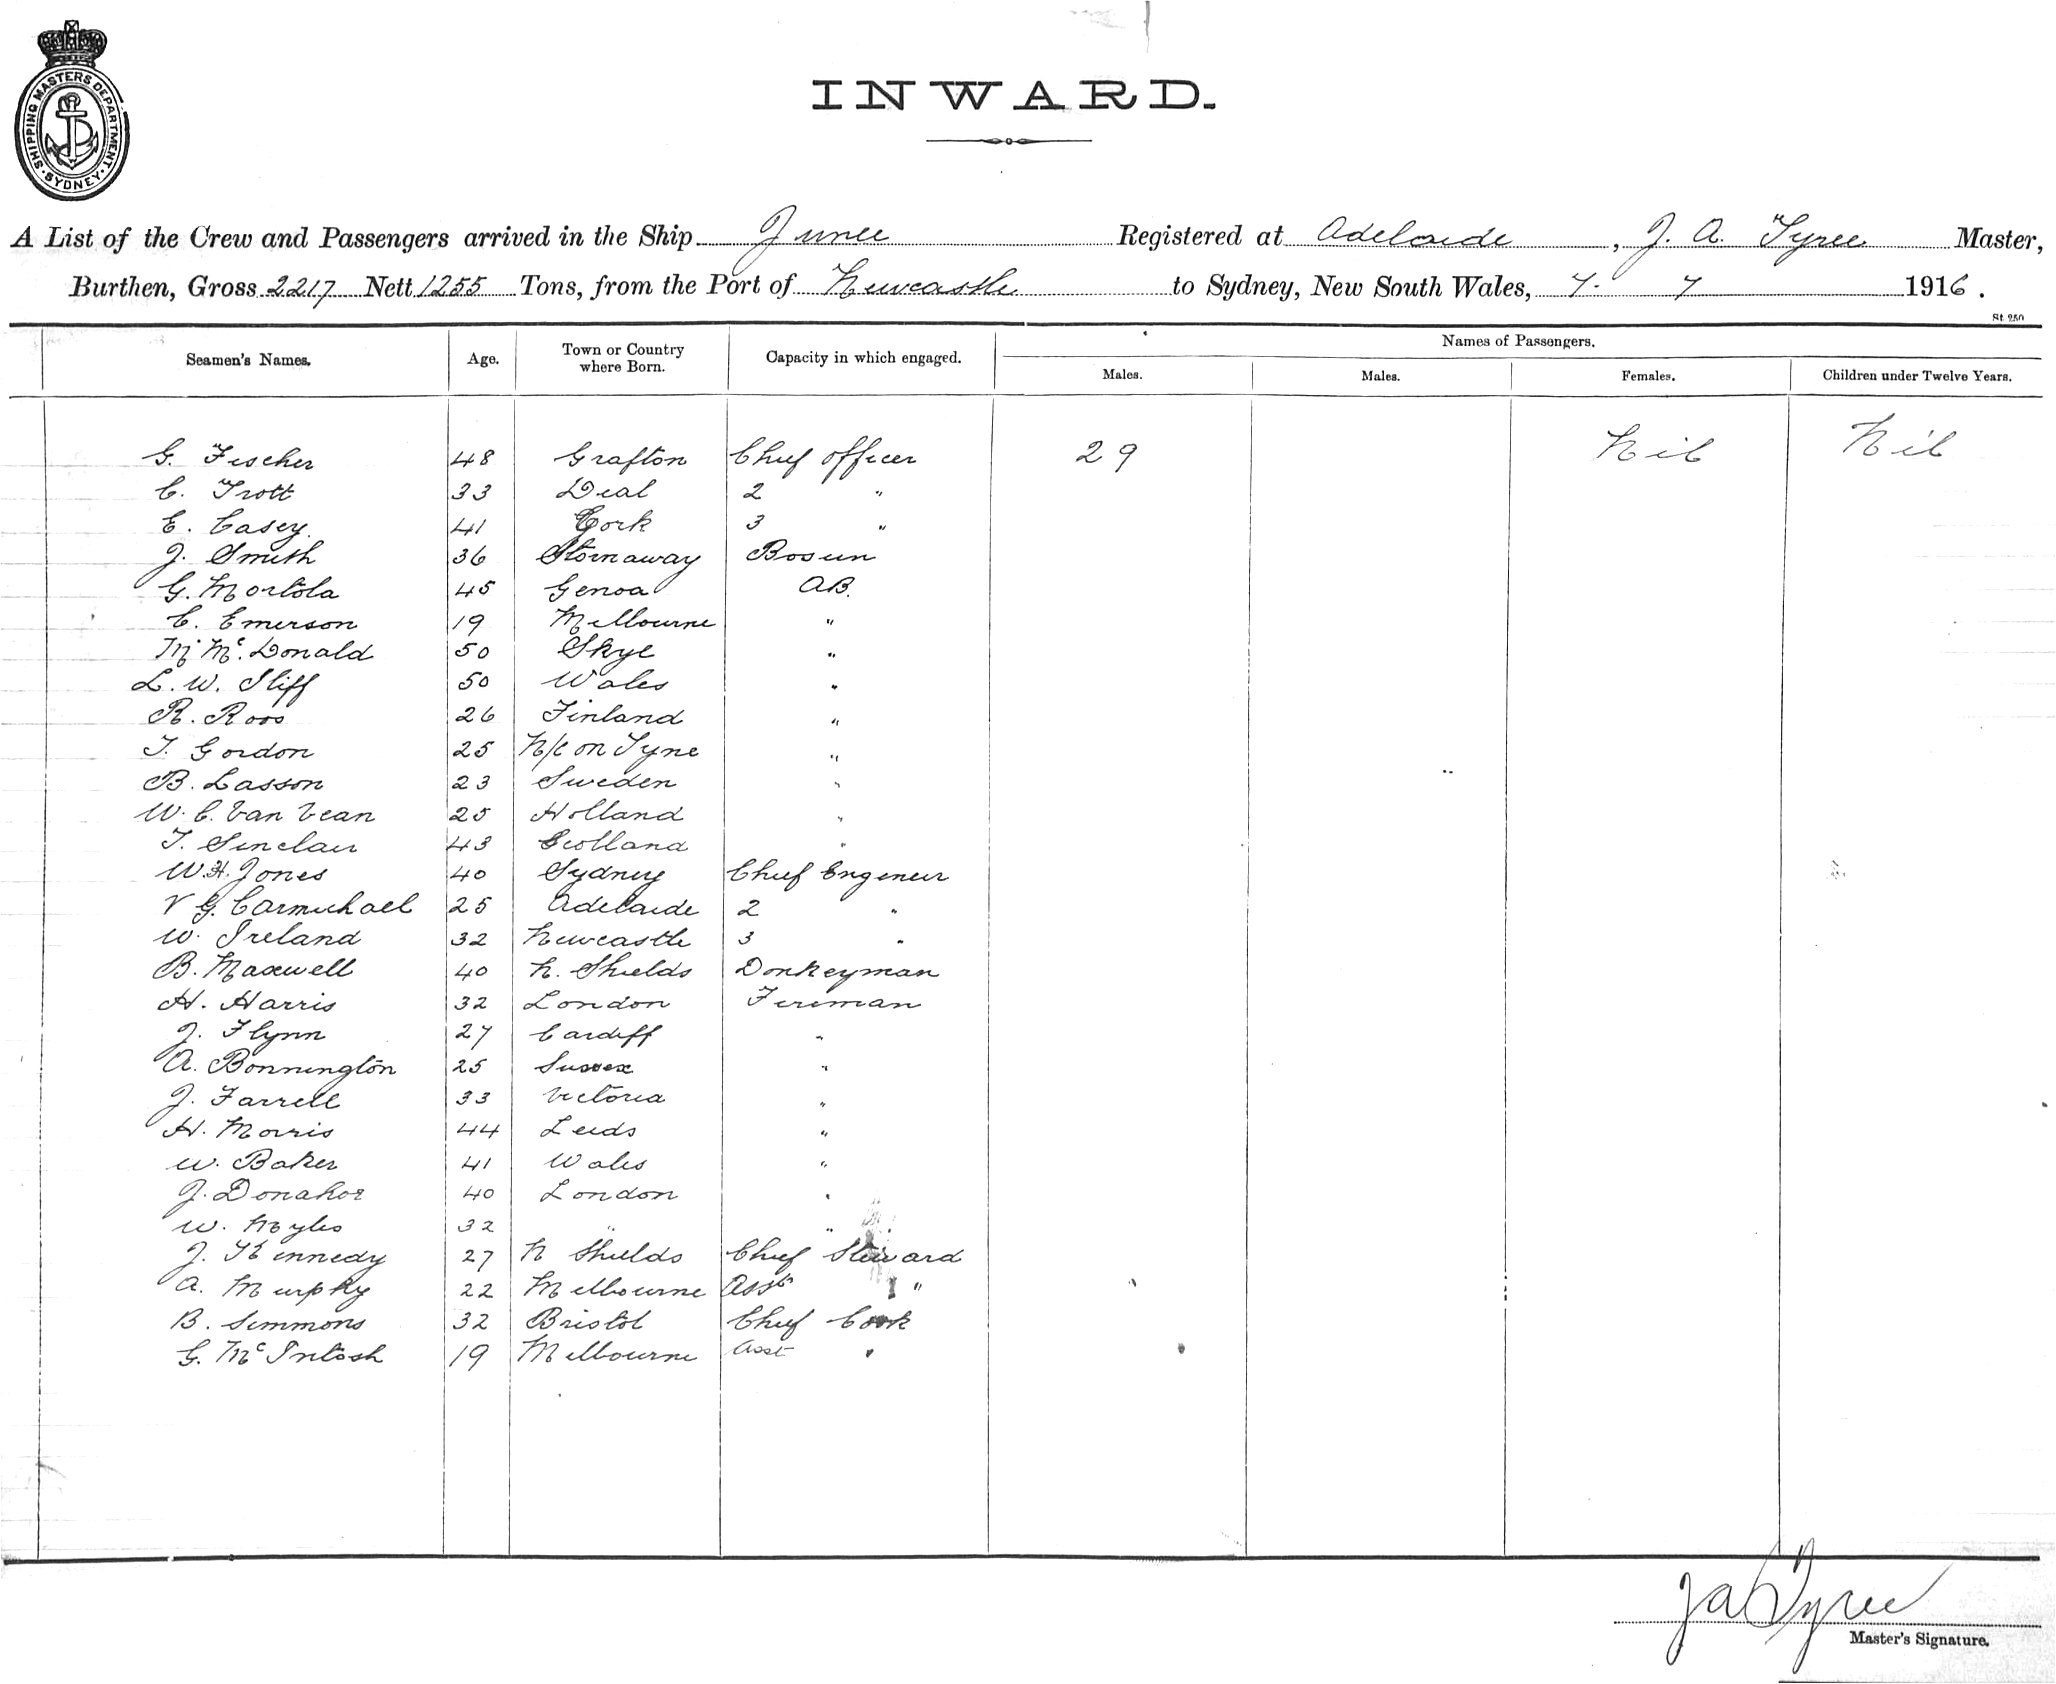 SHIPPING MASTERS DEPARTMENT. SYDNEY.
INWARD.
A List of the Crew and Passengers arrived in the Ship Junee Registered at Adelaide, J. A. Tyree Master,
Burthen, Gross 2217 Nett 1255 Tons, from the Port of Newcastle to Sydney, New South Wales, 7. 7 1916.
St 250
Seamen's Names. Age. Town or Country where Born. Capacity in which engaged. Names of Passengers.
Males. Males. Females. Children under Twelve Years.
G. Fischer 48 Grafton Chief Officer 29 Nil Nil
C. Trott 33 Deal 2 "
E. Casey 41 Cork 3 "
J. Smith 36 Stornaway Bosun
G. Mortola 45 Genoa AB.
C. Emerson 19 Melbourne "
M Mc. Donald 50 Skye "
L. W. Iliff 50 Wales "
R. Roos 26 Finland "
T. Gordon 25 N/C on Tyne "
B. Lasson 23 Sweden "
W. C. Van Vean 25 Holland "
T. Sinclair 43 Scotland "
W. H. Jones 40 Sydney Chief Engineer
V G. Carmichael 25 Adelaide 2 "
W. Ireland 32 Newcastle 3 "
B. Maxwell 40 N. Shields Donkeyman
H. Harris 32 London Fireman
J. Flynn 27 Cardiff "
A. Bonnington 25 Sussex "
J. Farrell 33 Victoria "
H. Morris 44 Leeds "
W. Baker 41 Wales "
J. Donahoe 40 London "
W. Myles 32 " "
J. Kennedy 27 N Shields Chief Steward
A. Murphy 22 Melbourne Asst "
B. Simmons 32 Bristol Chief Cook
G. McIntosh 19 Melbourne Asst "
J A Tyree
Master's Signature.